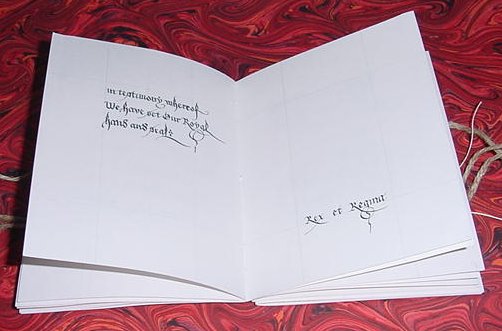 in testimony whereof
We, have set Our Royal
hand and seal:
Rex et Regina